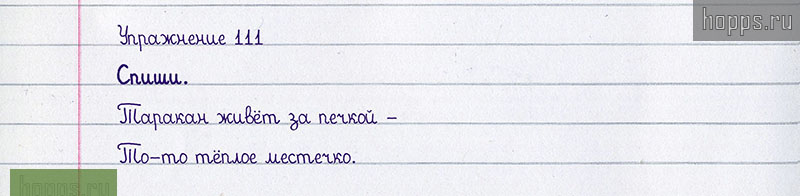 hopps.ru
Упражнение 111
Спиши.
Таракан живёт за печкой –
То-то тёплое местечко.
hopps.ru